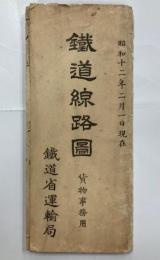 昭和十二年二月一日現在
鐵道線路圖
貨物事務用
鐵道省運輸局